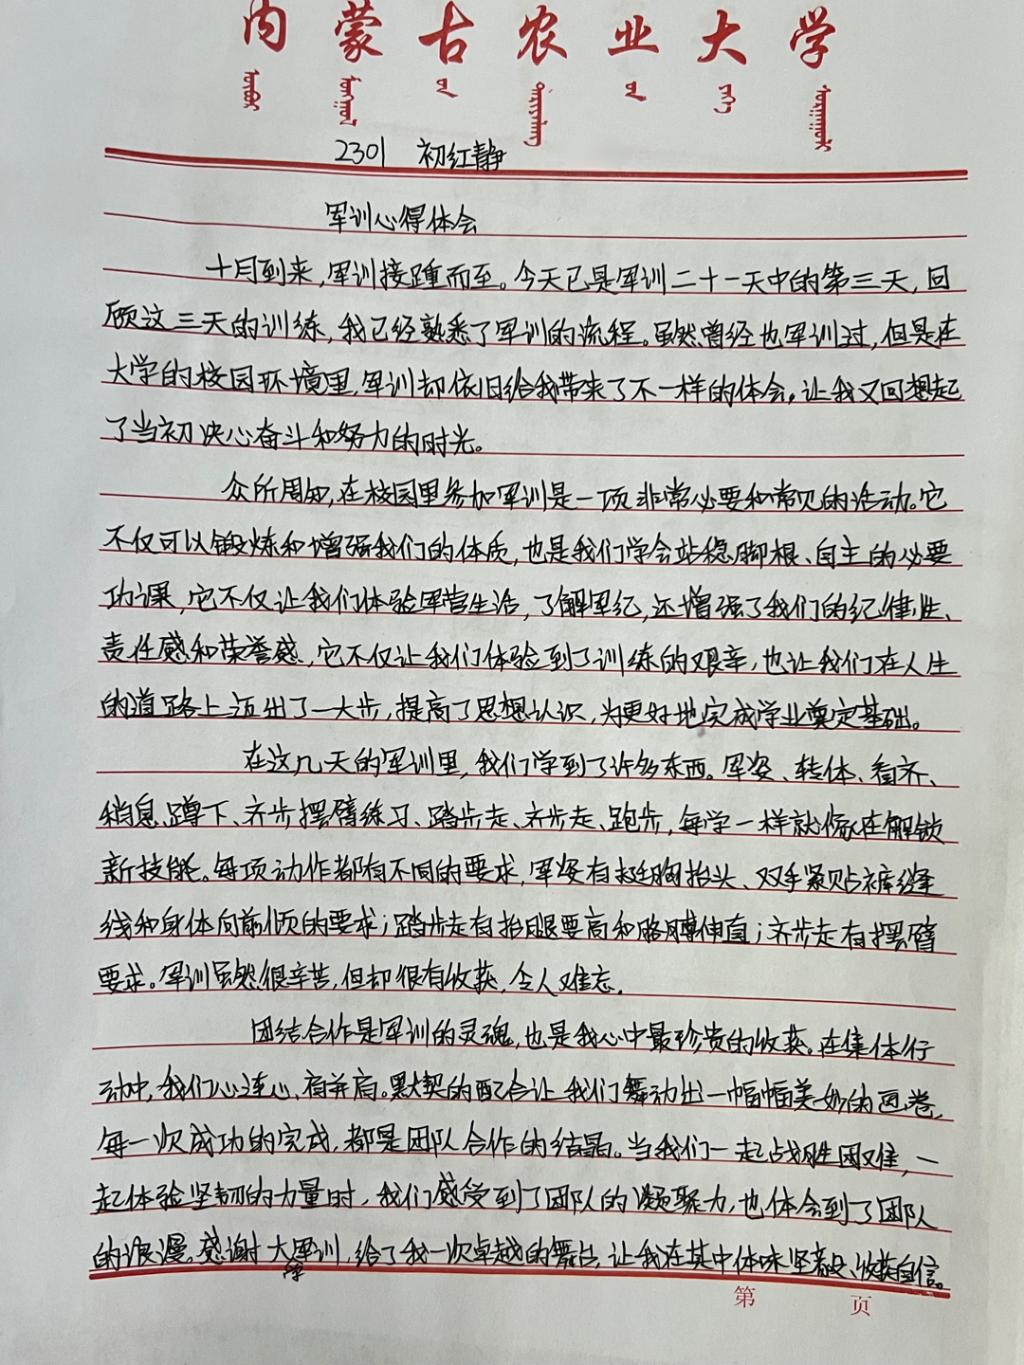 内蒙古农业大学
2301 初红静
军训心得体会
十月到来,军训接踵而至。今天已是军训二十一天中的第三天,回
顾这三天的训练,我已经熟悉了军训的流程。虽然曾经也军训过,但是在
大学的校园环境里,军训却依旧给我带来了不一样的体会。让我又回想起
了当初决心奋斗和努力的时光。
众所周知,在校园里参加军训是一项非常必要和常见的活动。它
不仅可以锻炼和增强我们的体质,也是我们学会站稳脚根、自主的必要
功课,它不仅让我们体验军营生活,了解军纪,还增强了我们的纪律性、
责任感和荣誉感,它不仅让我们体验到了训练的艰辛,也让我们在人生
的道路上迈出了一大步,提高了思想认识,为更好地完成学业奠定基础。
在这几天的军训里,我们学到了许多东西。军姿、转体、看齐、
稍息、蹲下、齐步摆臂练习、踏步走、齐步走、跑步,每学一样就像在解锁
新技能。每项动作都有不同的要求,军姿有挺胸抬头、双手紧贴裤缝
线和身体向前倾的要求;踏步走有抬腿要高和胳膊伸直;齐步走有摆臂
要求。军训虽然很辛苦,但却很有收获,令人难忘。
团结合作是军训的灵魂,也是我心中最珍贵的收获。在集体行
动中,我们心连心,肩并肩。默契的配合让我们舞动出一幅幅美妙的画卷,
每一次成功的完成,都是团队合作的结晶。当我们一起战胜困难,一
起体验坚韧的力量时,我们感受到了团队的凝聚力,也体会到了团队
的浪漫。感谢大学军训,给了我一次卓越的舞台,让我在其中体味坚毅、收获自信。
第 页